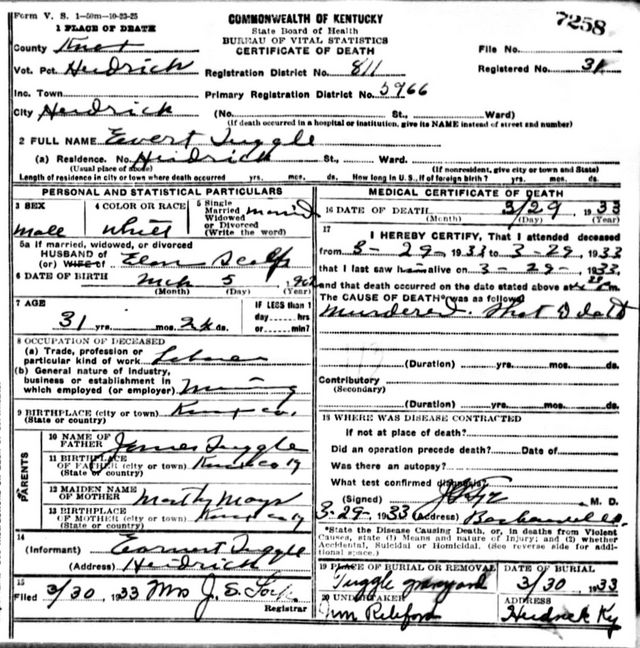 Form V. S. 1-50m-10-23-25
COMMONWEALTH OF KENTUCKY
State Board of Health
BUREAU OF VITAL STATISTICS
CERTIFICATE OF DEATH
7258
1 PLACE OF DEATH
County Knox
File No.
Vot. Pct. Heidrick
Registration District No. 811
Registered No. 31
Inc. Town
Primary Registration District No. 5966
City Heidrick
(No. St., Ward)
(If death occurred in a hospital or institution, give its NAME instead of street and number)
2 FULL NAME Evert Tuggle
(a) Residence. No. Heidrick St., Ward.
(Usual place of abode) (If nonresident, give city or town and State)
Length of residence in city or town where death occurred yrs. mos. ds. How long in U. S., if of foreign birth? yrs. mos. ds.
PERSONAL AND STATISTICAL PARTICULARS
3 SEX
Male
4 COLOR OR RACE
White
5 Single
Married
Widowed
or Divorced
(Write the word)
Married
5a If married, widowed, or divorced
HUSBAND of
(or) WIFE of Scalf
6 DATE OF BIRTH Mch 5 1902
(Month) (Day) (Year)
7 AGE
31 yrs. mos. 24 ds.
IF LESS than 1
day hrs
or min?
8 OCCUPATION OF DECEASED
(a) Trade, profession or
particular kind of work
(b) General nature of Industry,
business or establishment in
which employed (or employer) Mining
9 BIRTHPLACE (city or town) Knox co.
(State or country)
PARENTS
10 NAME OF
FATHER James Tuggle
11 BIRTHPLACE
OF FATHER (city or town) Knox co Ky
(State or country)
12 MAIDEN NAME
OF MOTHER Mays
13 BIRTHPLACE
OF MOTHER (city or town) Knox co Ky
(State or country)
14
(Informant) Earnest Tuggle
(Address) Heidrick
15
Filed 3/30, 1933 Mrs J. S.
Registrar
MEDICAL CERTIFICATE OF DEATH
16 DATE OF DEATH 3/29 1933
(Month) (Day) (Year)
17
I HEREBY CERTIFY, That I attended deceased
from 3-29-1933 to 3-29-1933,
that I last saw him alive on 3-29-1933,
and that death occurred on the date stated above at m.
The CAUSE OF DEATH* was as follows:
Murdered. Shot Death
(Duration) yrs. mos. ds.
Contributory
(Secondary)
(Duration) yrs. mos. ds.
18 WHERE WAS DISEASE CONTRACTED
If not at place of death?
Did an operation precede death? Date of
Was there an autopsy?
What test confirmed diagnosis?
(Signed) M. D.
3-29-1933 (Address) Barbourville
*State the Disease Causing Death, or, in deaths from Violent
Causes, state (1) Means and nature of Injury; and (2) whether
Accidental, Suicidal or Homicidal. (See reverse side for addi-
tional space.)
19 PLACE OF BURIAL OR REMOVAL
Tuggle graveyard
DATE OF BURIAL
3/30 1933
20 UNDERTAKER
Jim
ADDRESS
Heidrick Ky